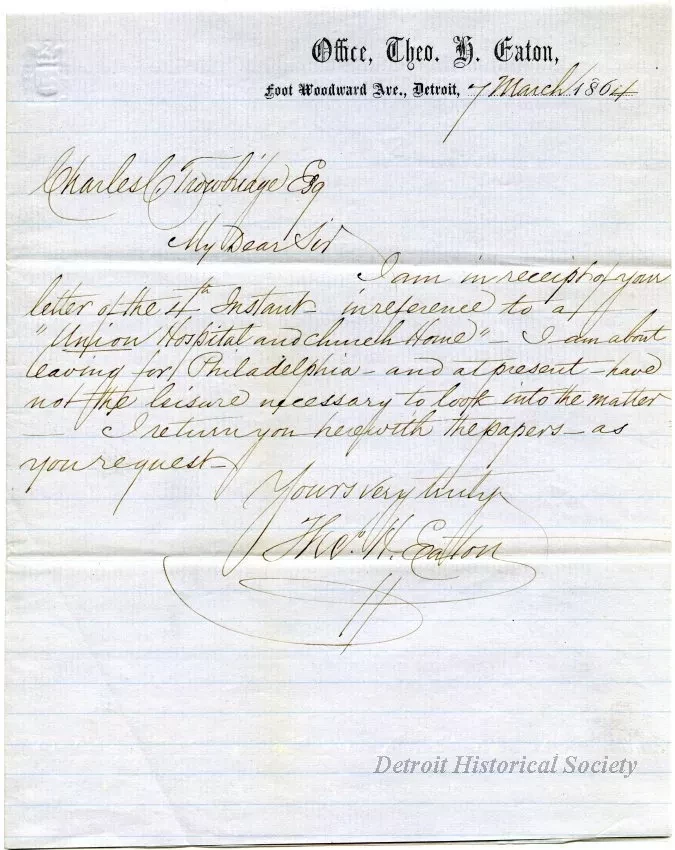 Office, Theo. H. Eaton,
Foot Woodward Ave., Detroit, 7 March 1864
Charles C Trowbridge Esq
My Dear Sir
I am in receipt of your
letter of the 4th Instant - in reference to a
"Union Hospital and church Home" - I am about
leaving for Philadelphia - and at present - have
not the leisure necessary to look into the matter
- I return you herewith the papers - as
you request -
Yours very truly
Theo. H. Eaton
Detroit Historical Society